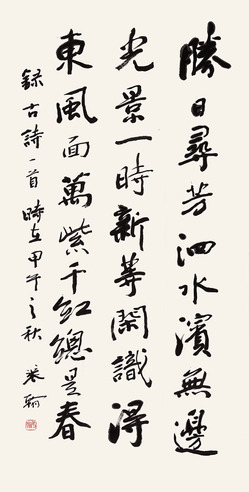 勝日尋芳泗水濱無邊
光景一時新等閑識得
東風面萬紫千紅總是春
錄古詩一首時在甲午之秋